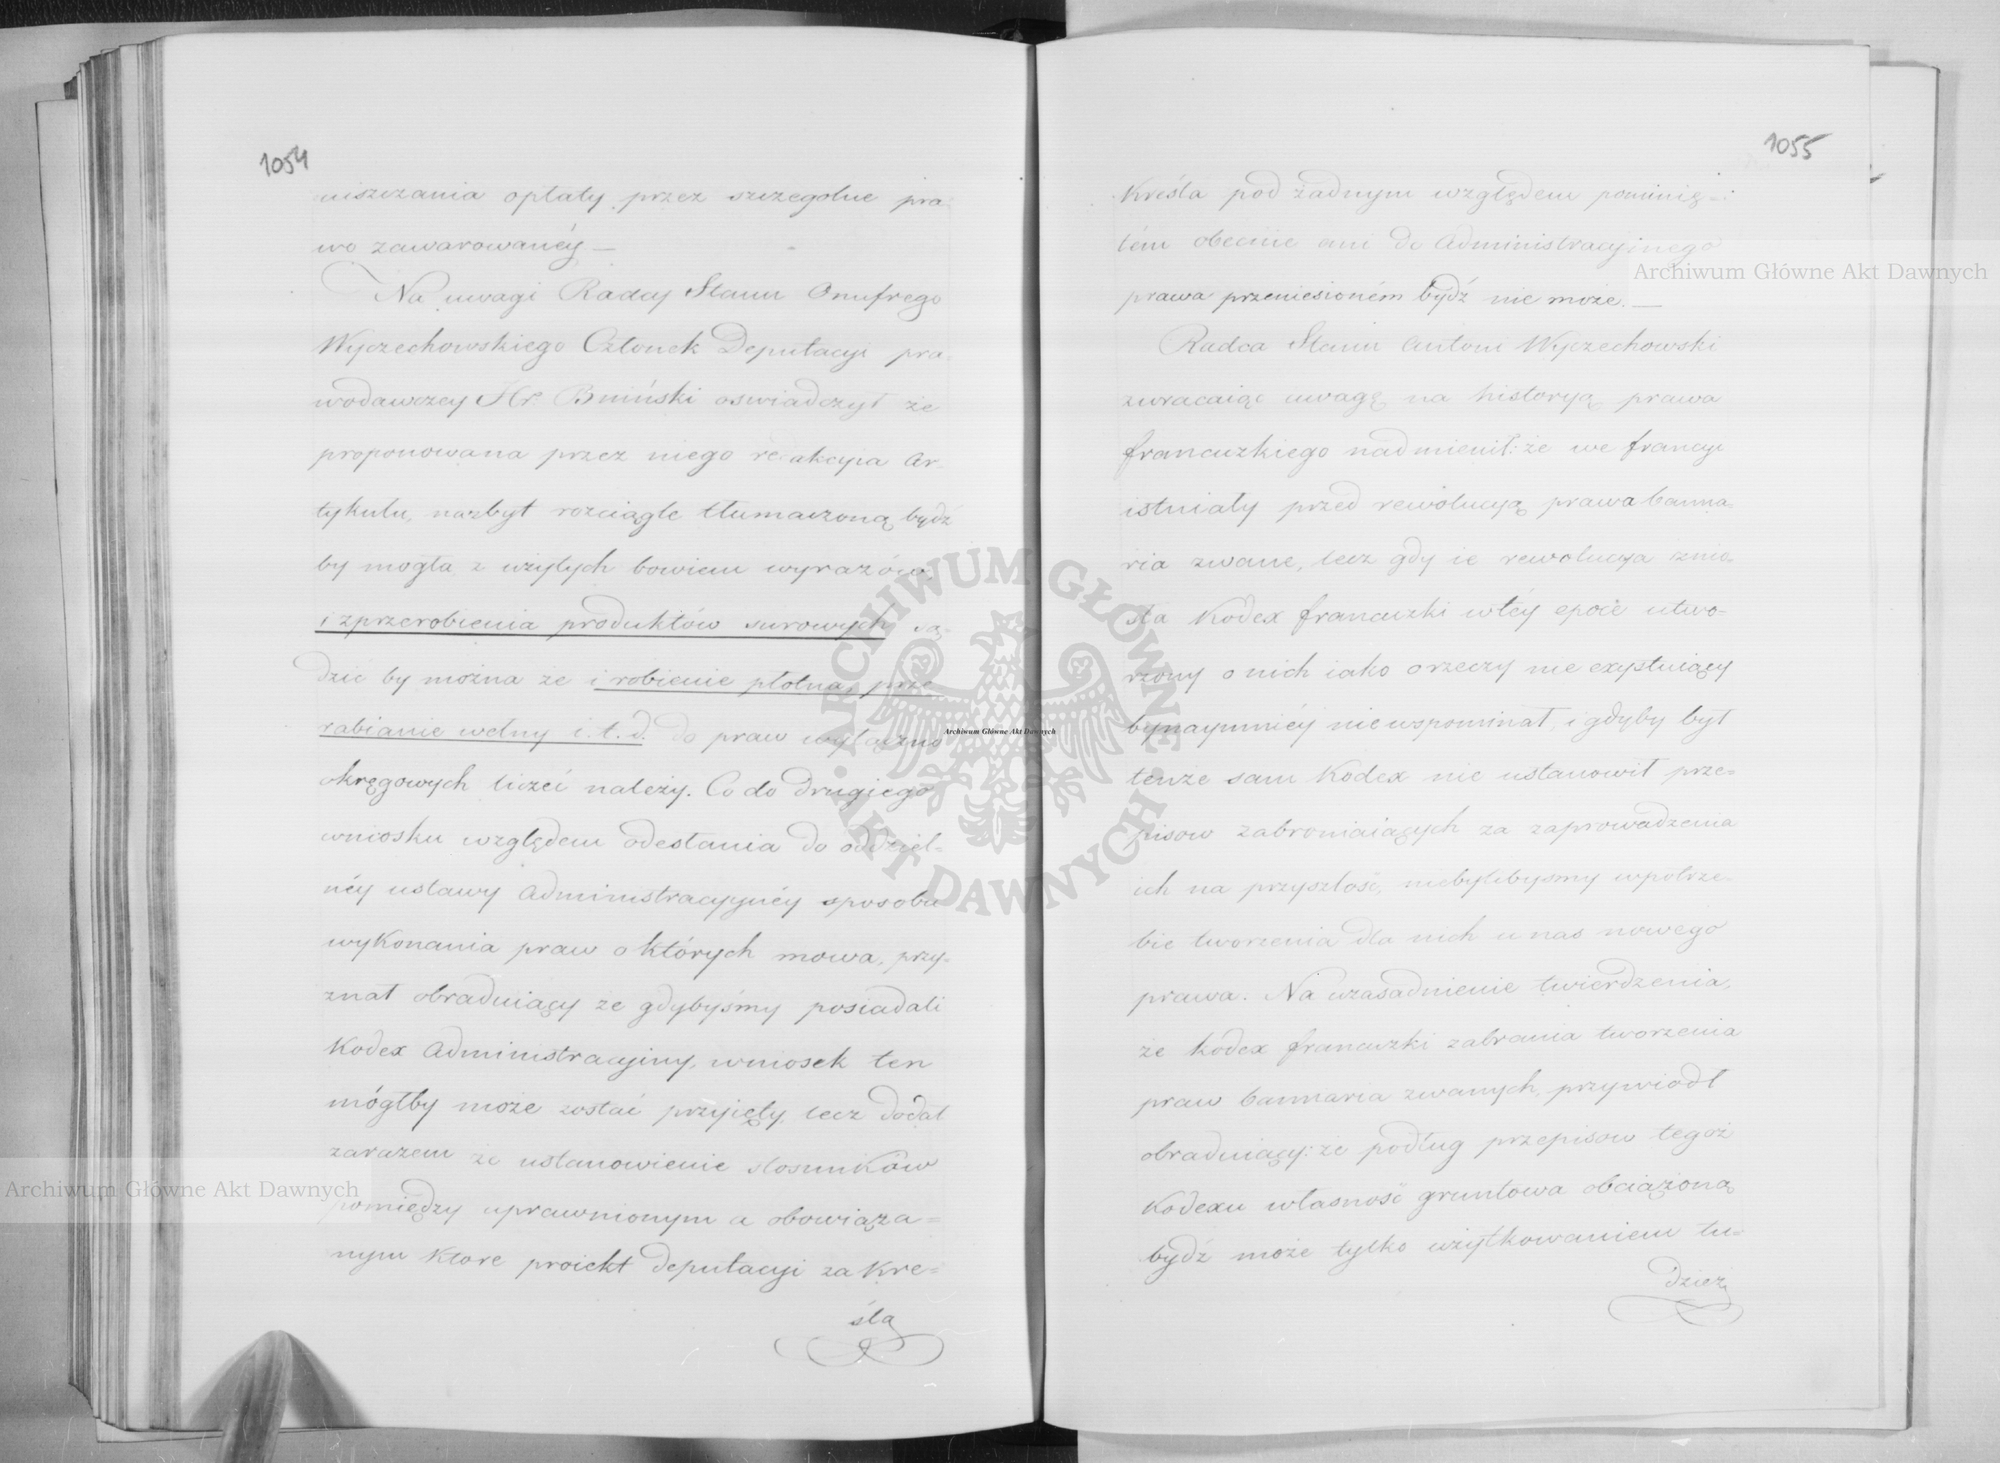 1054
uiszczania opłaty przez szczegolne pra-
wo zawarowanéy —
Na uwagi Radcy Stanu Onufrego
Wyczechowskiego Członek Deputacyi pra-
wodawczey Hr. Bniński oswiadczył że
proponowana przez niego redakcyia Ar-
tykułu, nazbyt rozciągle tłumaczoną bydź
by mogła z użytych bowiem wyrazów,
i z przerobienia produktów surowych są-
dzić by można że i robienie płotna, prze
rabianie wełny i. t. d. do praw wyłączno
okręgowych liczéć należy. Co do drugiego
wniosku względem odesłania do oddziel-
néy ustawy Administracyynéy sposobu
wykonania praw o których mowa, przy-
znał obraduiący że gdybyśmy posiadali
Kodex Administracyiny, wniosek ten
mógłby może zostać przyięty, lecz dodał
zarazem że ustanowienie stosunków
pomiędzy uprawnionym a obowiąza=
nym które proiekt deputacyi za kre=
śla
1055
kréśla pod żadnym względem pominię=
tém obecnie ani do Administracyinego
prawa przeniesioném bydź nie może. —
Radca Stanu Antoni Wyczechowski
zwracaiąc uwagę na historyą prawa
francuzkiego nadmienił: że we francyi
istniały przed rewolucyą prawa banna-
ria zwane, lecz gdy ie rewolucya znio-
sła Kodex francuzki w téy epoce utwo-
rzony o nich iako o rzeczy nie exystuiący
bynaymniéy nie wspominał, i gdyby był
tenże sam Kodex nie ustanowił prze=
pisow zabroniaiących za zaprowadzenia
ich na przyszłość, niebylibysmy w potrze=
bie tworzenia dla nich u nas nowego
prawa. Na uzasadnienie twierdzenia,
że Kodex francuzki zabrania tworzenia
praw bannaria zwanych, przywiodł
obraduiący: że podług przepisow tegoż
Kodexu własność gruntowa obciążoną
bydź może tylko użytkowaniem tu=
dzież
Archiwum Główne Akt Dawnych
Archiwum Główne Akt Dawnych
Archiwum Główne Akt Dawnych
ARCHIWUM GŁÓWNE
AKT DAWNYCH